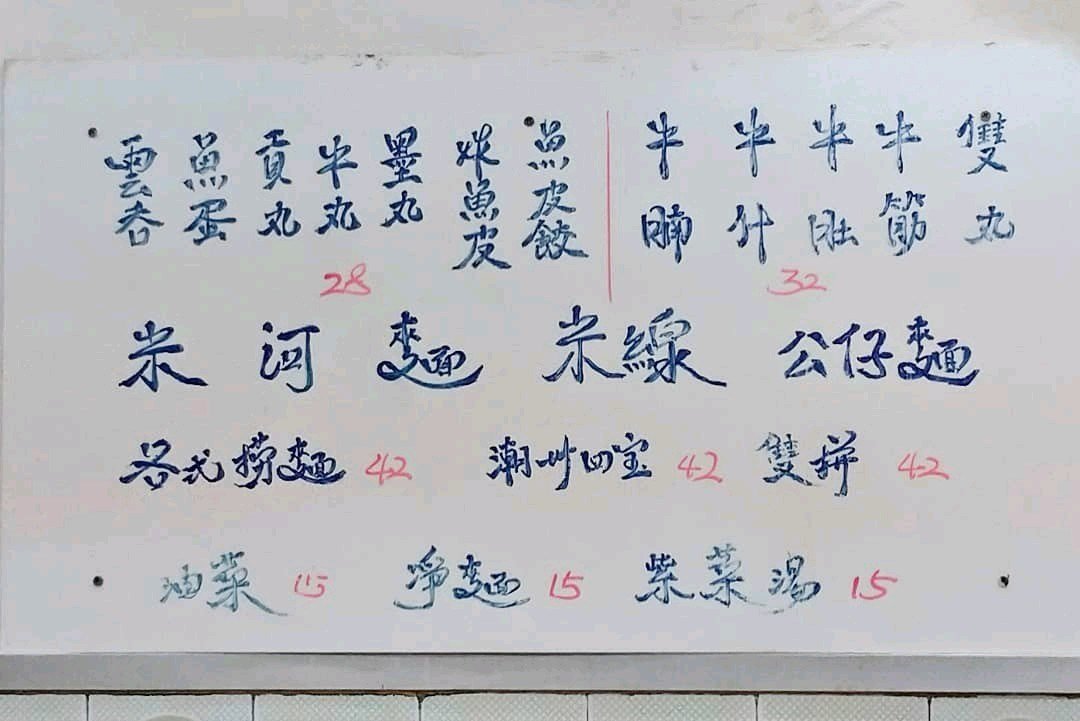 雲吞 魚蛋 貢丸 牛丸 墨丸 炸魚皮 魚皮餃 28
牛腩 牛什 牛肚 牛筋 雙丸 32
米 河 麵 米線 公仔麵
各式撈麵 42 潮州四宝 42 雙拼 42
油菜 15 淨麵 15 紫菜湯 15